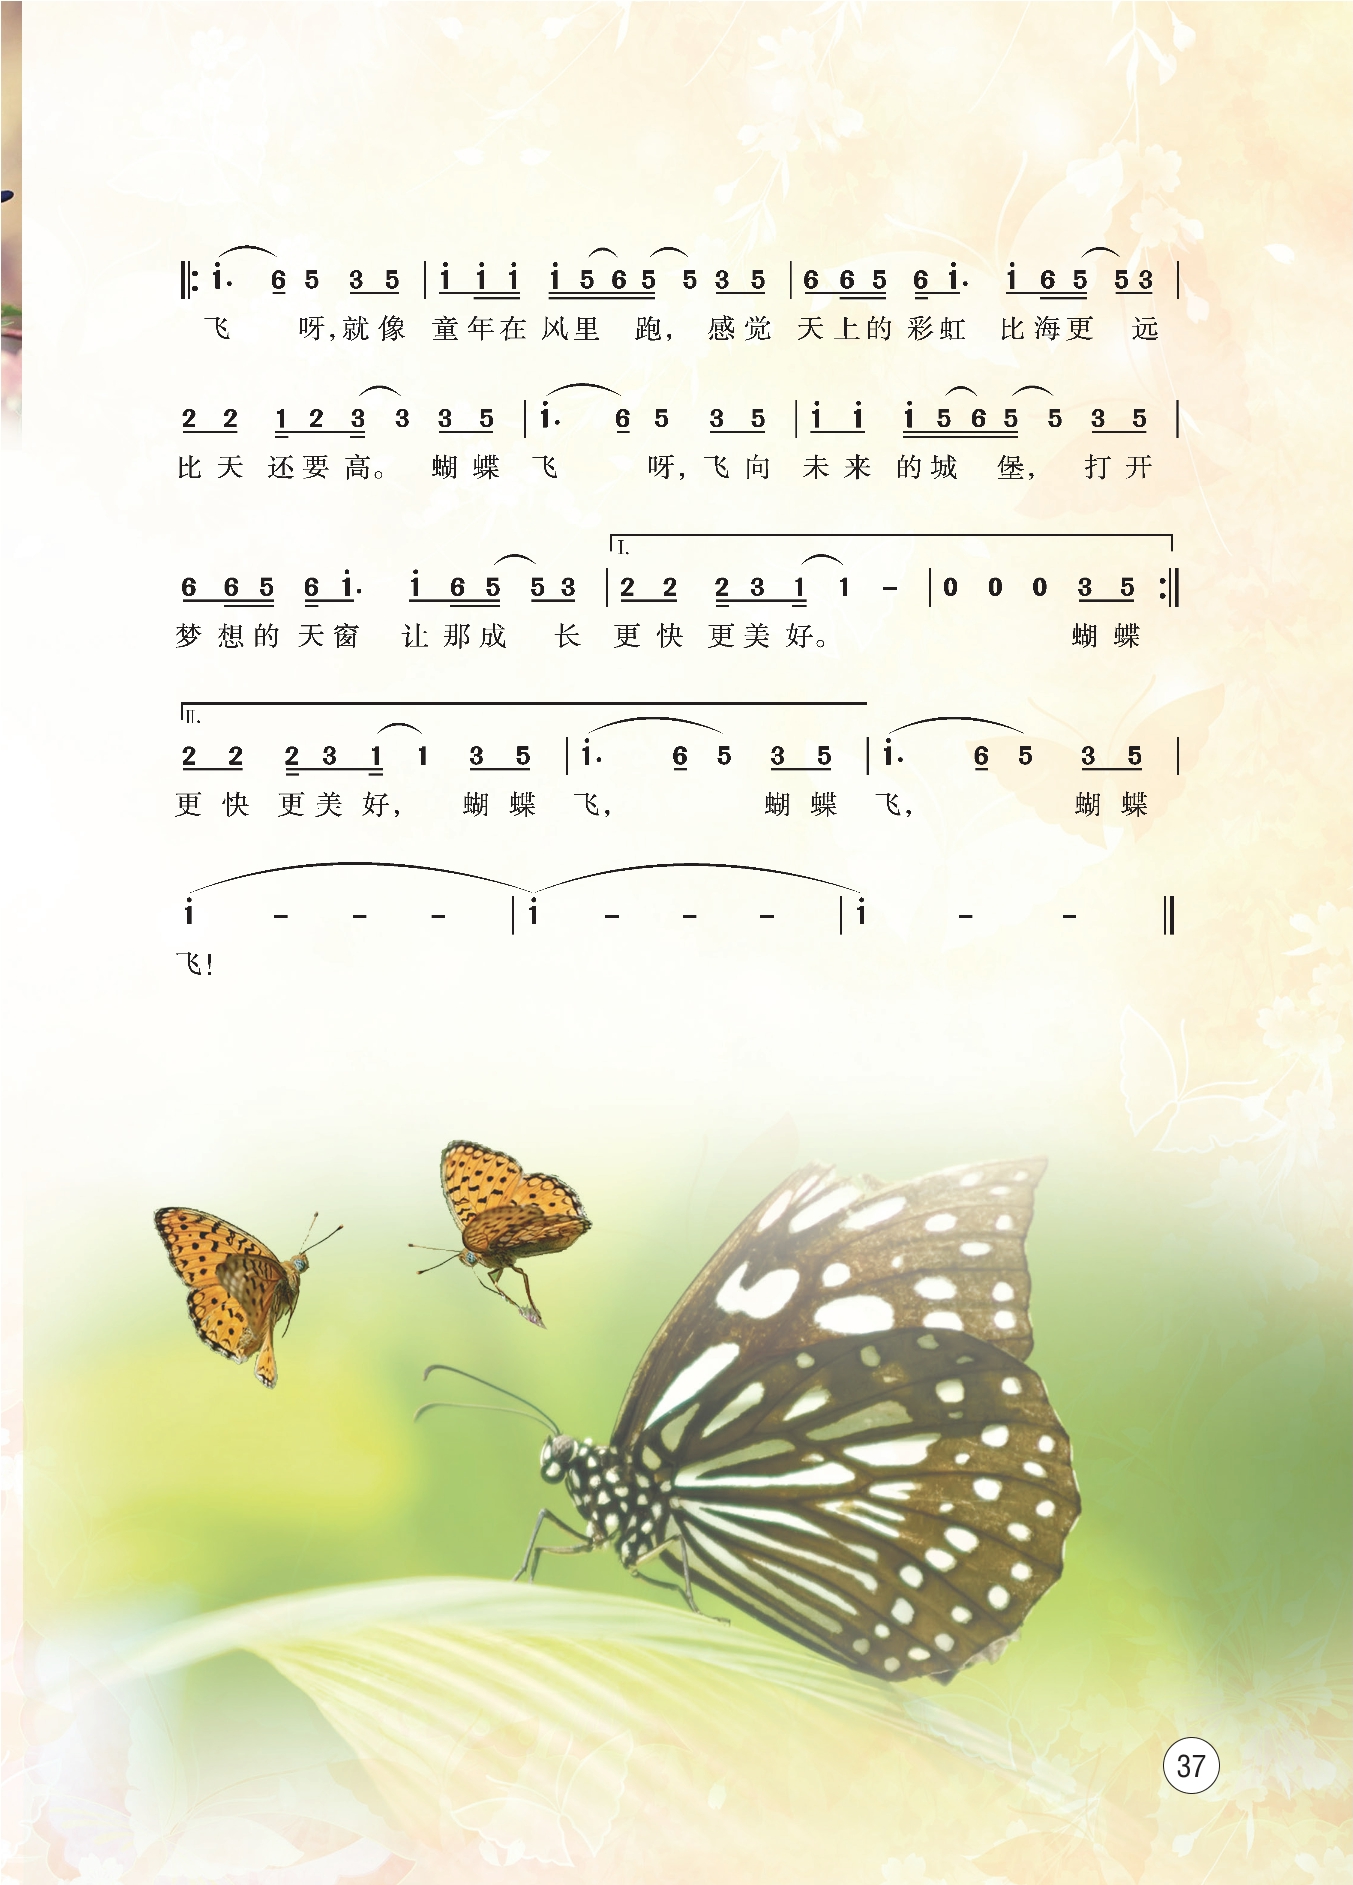 i. 6 5 3 5 | i i i i 5 6 5 5 3 5 | 6 6 5 6 i. i 6 5 5 3 |
飞 呀,就像 童年在 风里 跑, 感觉 天上的 彩虹 比海更 远
2 2 1 2 3 3 3 5 | i. 6 5 3 5 | i i i 5 6 5 5 3 5 |
比天 还要高。 蝴蝶 飞 呀,飞向 未来 的城 堡, 打开
I.
6 6 5 6 i. i 6 5 5 3 | 2 2 2 3 1 1 – | 0 0 0 3 5 :|
梦想的 天窗 让那成 长 更快 更美好。 蝴蝶
II.
2 2 2 3 1 1 3 5 | i. 6 5 3 5 | i. 6 5 3 5 |
更快 更美好, 蝴蝶 飞, 蝴蝶 飞, 蝴蝶
i – – – | i – – – | i – – ‖
飞!
37